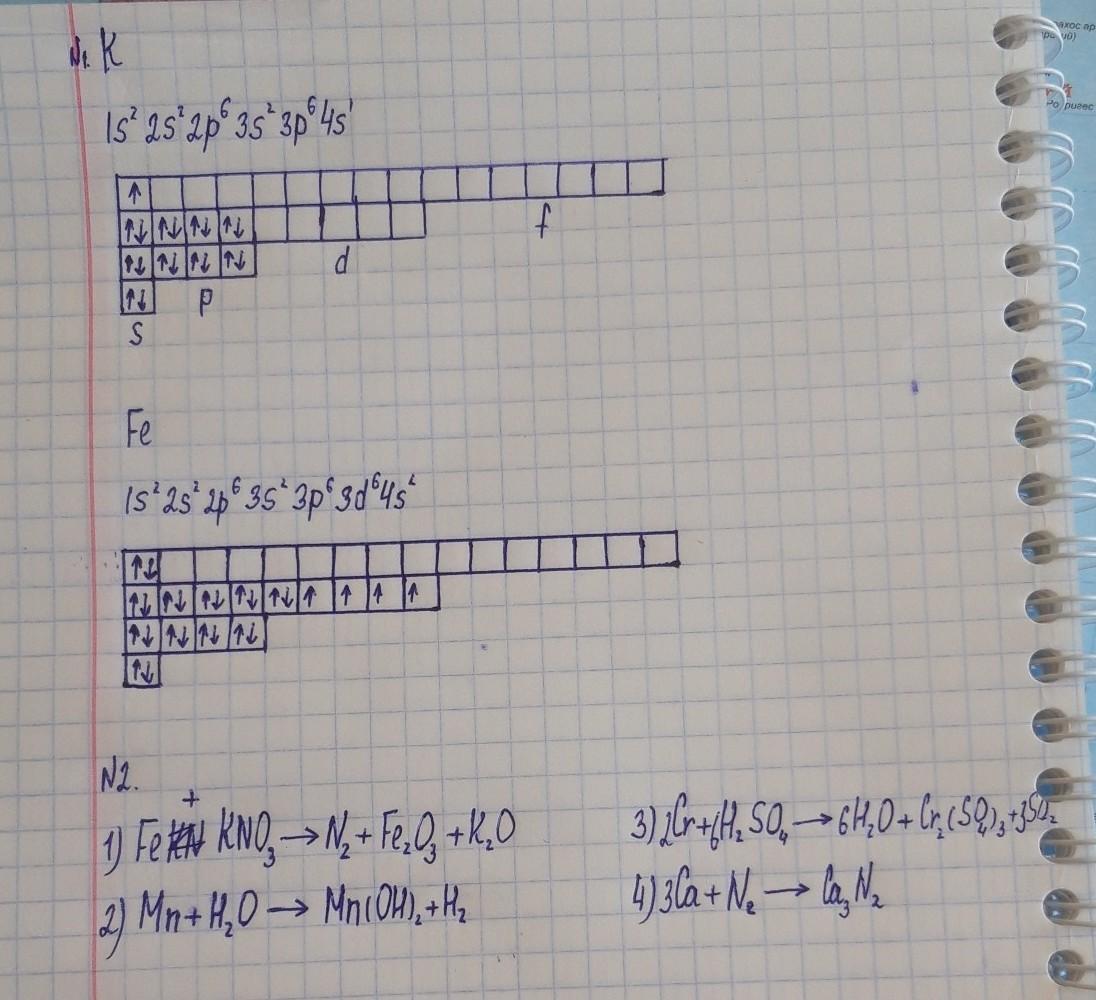 N1. K
1s² 2s² 2p⁶ 3s² 3p⁶ 4s¹
↑
↑↓ ↑↓ ↑↓ ↑↓
f
↑↓ ↑↓ ↑↓ ↑↓
d
↑↓
p
s
Fe
1s² 2s² 2p⁶ 3s² 3p⁶ 3d⁶ 4s²
↑↓
↑↓ ↑↓ ↑↓ ↑↓ ↑↓ ↑ ↑ ↑ ↑
↑↓ ↑↓ ↑↓ ↑↓
↑↓
N2.
1) Fe + KNO₃ → N₂ + Fe₂O₃ + K₂O
2) Mn + H₂O → Mn(OH)₂ + H₂
3) 2Cr + 6H₂SO₄ → 6H₂O + Cr₂(SO₄)₃ + 3SO₂
4) 3Ca + N₂ → Ca₃N₂